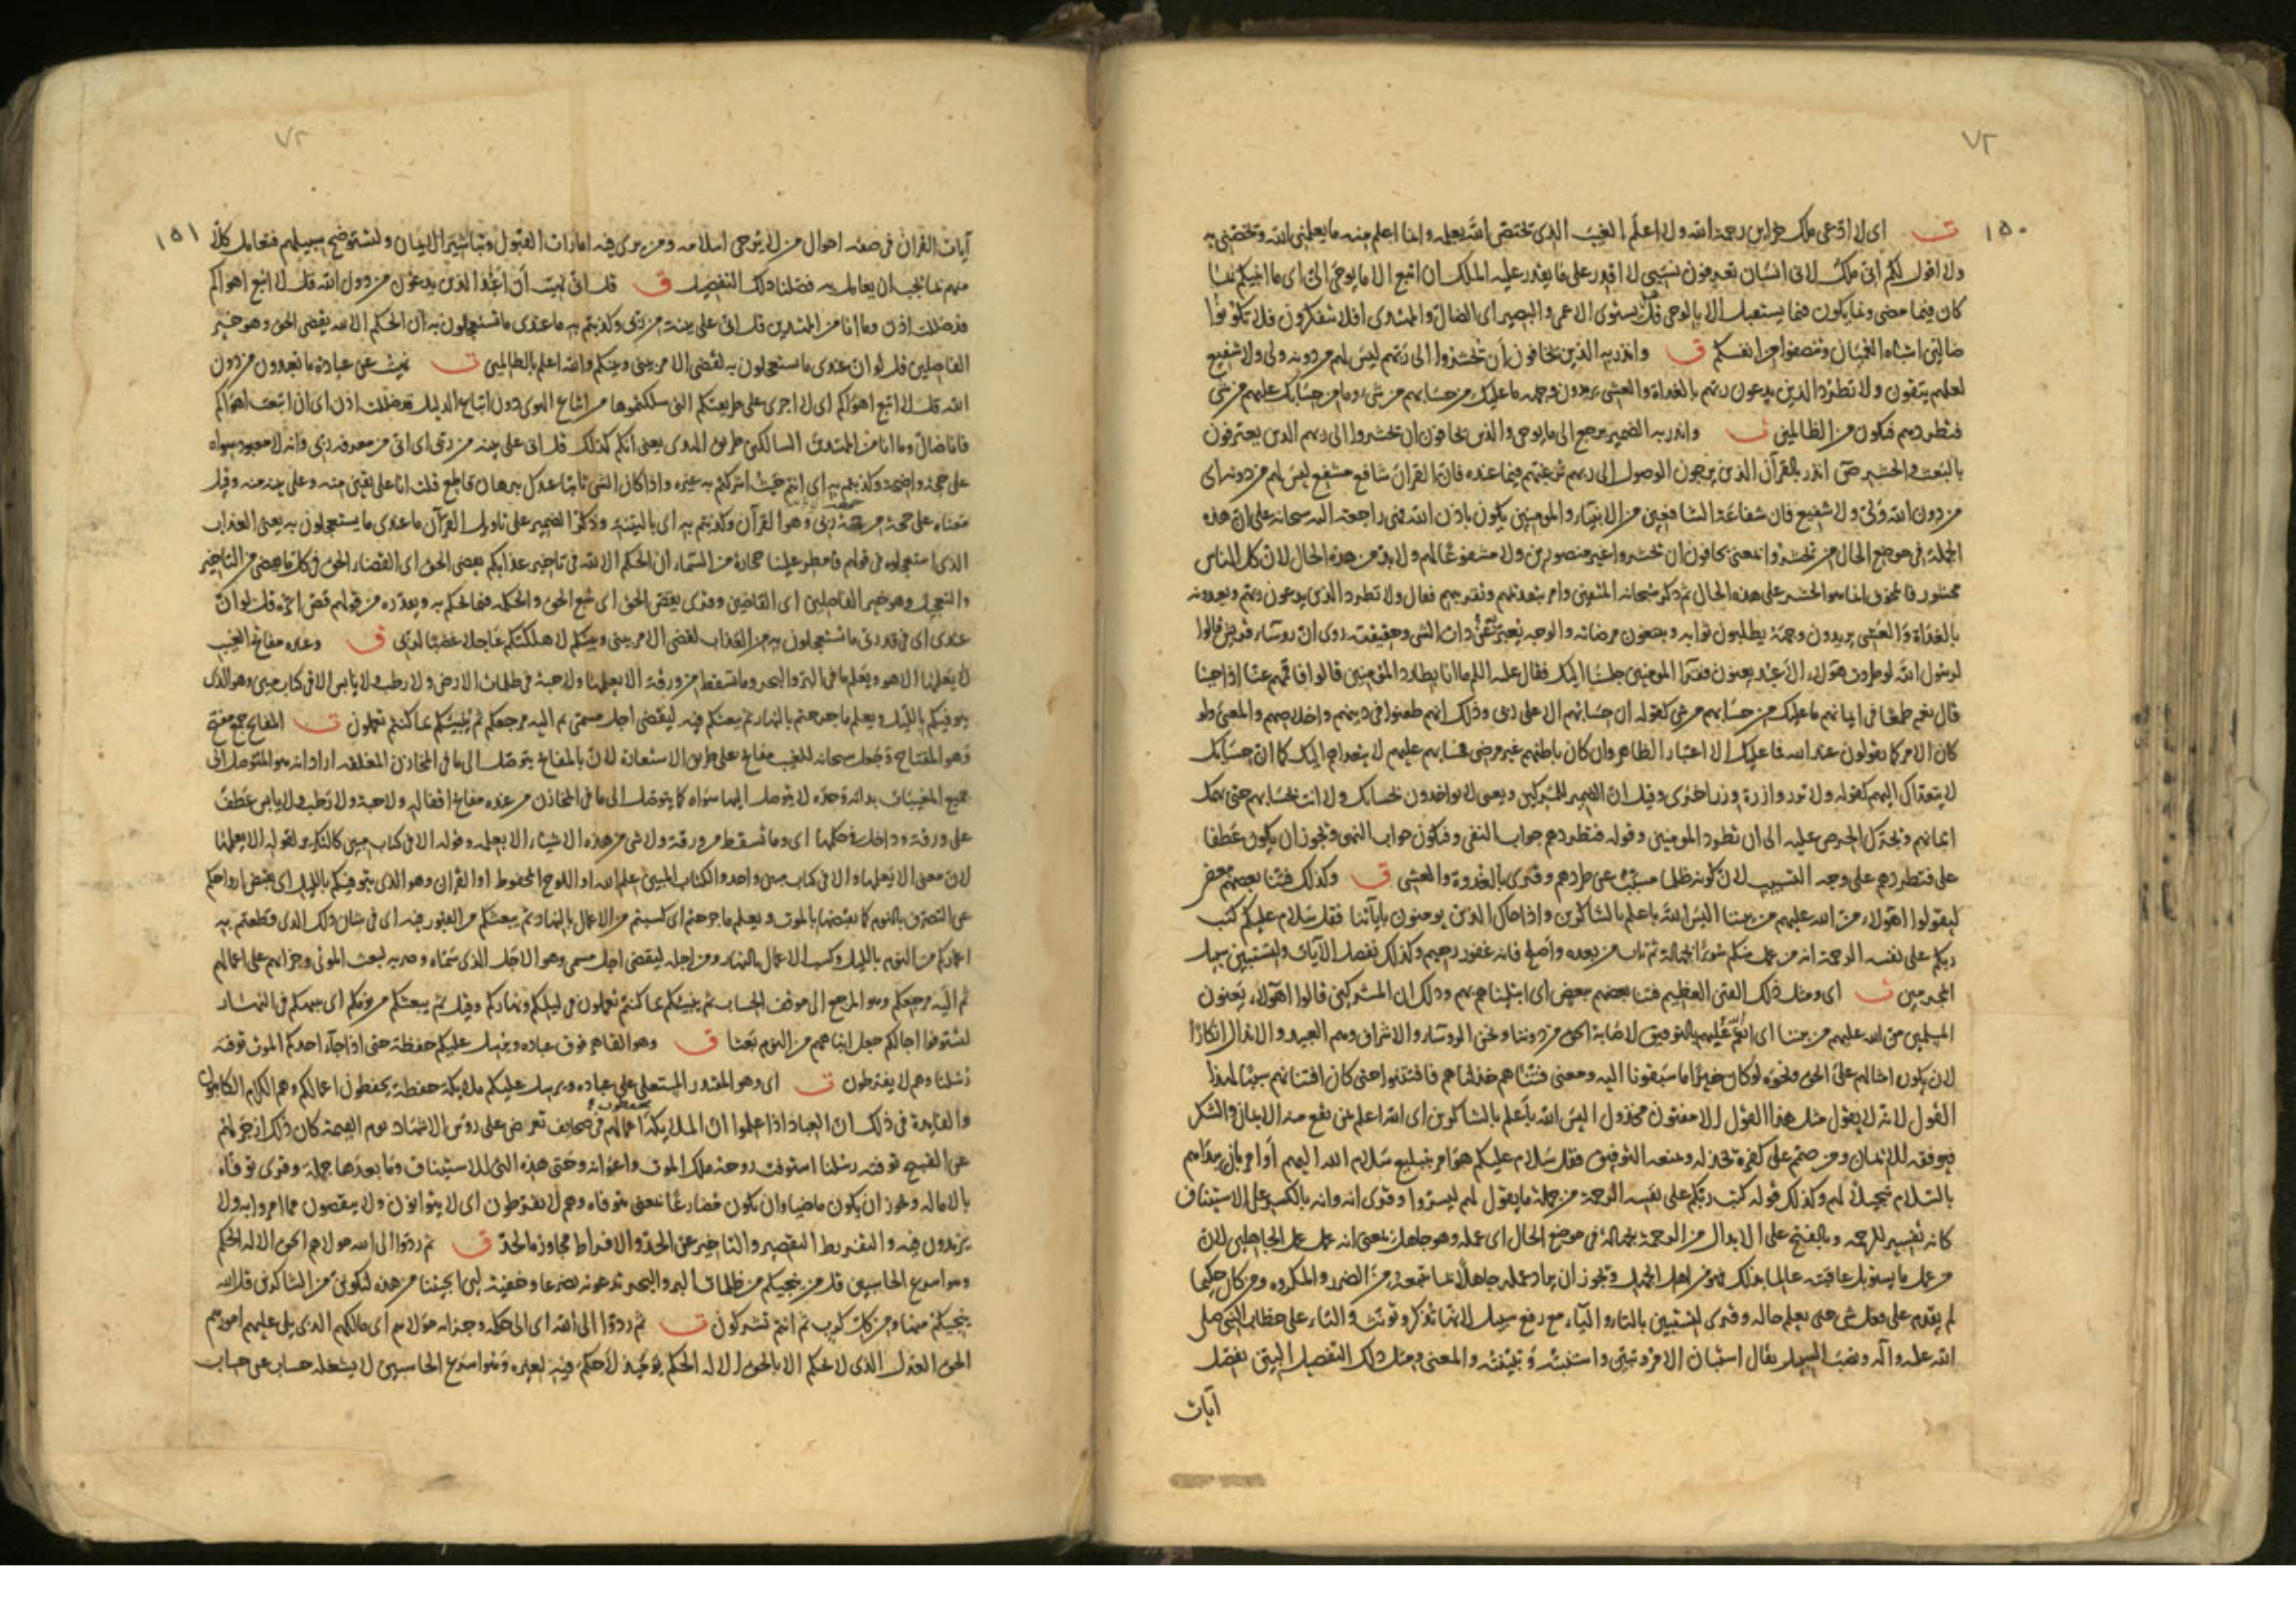 ٧٢
١٥٠
ت اى لا ادّعى ملك خزاين رحمة الله ولا اعلم الغيب الذى تختص الله بعلمه وانما اعلم منه ما يعلمنى الله وتخصّنى به
ولا اقول لكم انى ملك لانى انسان تعرفون نسبى لا اقدر على ما يقدر عليه الملك ان اتبع الا ما يوحى الىّ اى ما انبيكم عما
كان فيما مضى وعما يكون فيما يستقبل الا بالوحى قل هل يستوى الاعمى والبصير اى الضالّ والمهتدى افلا تتفكرون فلا تكونوا
ضالين اشباه العميان وتنصفوا من انفسكم ق وانذر به الذين يخافون أن تحشروا الى ربّهم ليس لهم من دونه ولى ولا شفيع
لعلهم يتقون ولا تطرد الذين يدعون ربهم بالغداة والعشى يريدون وجهه ما عليك من حسابهم من شئ وما من حسابك عليهم من شئ
فتطردهم فتكون من الظالمين ت وانذر به الضمير يرجع الى ما يوحى والذين يخافون ان تحشروا الى ربهم الذين يعترفون
بالبعث والحشر انذر بالقرآن الذين يرجون الوصول الى ربهم ترغبهم فيما عنده فان القرآن شافع مشفع ليس لهم من دونه اى
من دون الله ولىّ ولا شفيع فان شفاعة الشافعين من الانبياء والمومنين يكون باذن الله فهى راجعة اليه سبحانه على ان هذه
الجملة فى موضع الحال من تحشروا والمعنى يخافون ان تحشروا غير منصورين ولا مشفوعا لهم ولا بدّ من هذه الحال لان كل الناس
محشور فالمخوف انما هو الحشر على هذه الحال ثم ذكر سبحانه المتقين وامر بتقديمهم وتقريبهم فقال ولا تطرد الذين يدعون ربهم ويعبدونه
بالغداة والعشى يريدون وجهه يطلبون ثوابه ويبتغون مرضاته والوجه يعبّر به عن ذات الشئ وحقيقته روى ان رؤساء قريش قالوا
لرسول الله لو طردت هولاء الاعبد يعنون فقرا المومنين جلسنا اليك فقال عليه السلام ما انا بطارد المؤمنين قالوا فاقمهم عنا اذا جئنا
قال نعم طمعا فى ايمانهم ما عليك من حسابهم من شئ كقوله ان حسابهم الا على ربى وذلك انهم طعنوا فى دينهم واخلاصهم والمعنى ولو
كان الامر كما يقولون عند الله فما عليك الا اعتبار الظاهر وان كان باطنهم غير مرضى فحسابهم عليهم لا يتعداهم اليك كما ان حسابك
لا يتعداك اليهم كقوله ولا تزر وازرة وزر اخرى وقيل ان الضمير للمشركين والمعنى لا يواخذون بحسابك ولا انت بحسابهم حتى يهمك
ايمانهم ويجرّك الحرص عليه الى ان تطرد المومنين وقوله فتطردهم جواب النفى وفتكون جواب النهى ويجوز ان يكون عطفا
على فتطردهم على وجه التسبيب لان كونه ظالما مسبّب عن طردهم وقرى بالغدوة والعشى ق وكذلك فتنا بعضهم ببعض
ليقولوا اهولاء منّ الله عليهم من بيننا اليس الله باعلم بالشاكرين واذا جاك الذين يومنون باياتنا فقل سلام عليكم كتب
ربكم على نفسه الرحمة انه من عمل منكم سوءا بجهالة ثم تاب من بعده واصلح فانه غفور رحيم وكذلك نفصل الآيات ولتستبين سبيل
المجرمين ت اى ومثل ذلك الفتن العظيم فتنا بعضهم ببعض اى ابتليناهم بهم وذلك ان المشركين قالوا اهولاء يعنون
المسلمين منّ الله عليهم من بيننا اى انعم عليهم بالتوفيق لاصابة الحق من دوننا ونحن الروساء والاشراف وهم العبيد والانذال انكارًا
لان يكون امثالهم على الحق ونحوه لو كان خيرًا ما سبقونا اليه ومعنى فتنّاهم خذلناهم فافتتنوا حتى كان افتتانهم سببًا لهذا
القول لانه لا يقول مثل هذا القول الا مفتون مخذول اليس الله باعلم بالشاكرين اى الله اعلم بمن يقع منه الايمان والشكر
فيوفقه للايمان ومن صمّم على كفره يخذله ومنعه التوفيق فقل سلام عليكم هو امر بتبليغ سلام الله اليهم او امر بان يبداهم
بالسلام تبجيلًا لهم وكذلك قوله كتب ربكم على نفسه الرحمة من جملة ما يقول لهم ليسرّوا وقرى انه وانه بالكسر على الاستيناف
كانه تفسير للرحمة وبالفتح على الابدال من الرحمة بجهالة فى موضع الحال اى عمله وهو جاهل والمعنى انه عمل عمل الجاهلين لان
من عمل ما يسوء عاقبته عالما بذلك فهو من اهل الجهل ويجوز ان يراد عمله جاهلًا بما يتبعه من الضرر والمكروه ومن كان حكيما
لم يقدم على فعل شى حتى يعلم حاله وقرى لتستبين بالتاء والياء مع رفع سبيل لانها تذكر وتونث والتاء على خطاب النبى صلى
الله عليه وآله ونصب السبيل يقال استبان الامر وتبيّن واستبنته وتبيّنته والمعنى ومثل ذلك التفصيل البيّن نفصل
آيات
٧٢
١٥١
آيات القرآن فى صفة احوال من لا يُرجى اسلامه ومن يرى فيه امارات القبول وتباشير الايمان ولتستوضح سبيلهم فتعامل كلّا
منهم بما يجب ان يعامل به فصّلنا ذلك التفصيل ق قل انى نهيت أن أعبد الذين يدعون من دون الله قل لا اتبع اهواكم
قد ضللت اذن وما انا من المهتدين قل انى على بينة من ربى وكذبتم به ما عندى ما تستعجلون به ان الحكم الا لله يقضى الحق وهو خير
الفاصلين قل لو ان عندى ما تستعجلون به لقضى الامر بينى وبينكم والله اعلم بالظالمين ت نهيت عن عبادة ما تعبدون من دون
الله قل لا اتبع اهواكم اى لا اجرى على طريقتكم التى سلكتموها من اتباع الهوى دون اتباع الدليل قد ضللت اذن اى ان اتبعت اهواكم
فانا ضالّ وما انا من المهتدين السالكين طريق الهدى يعنى انكم كذلك قل انى على بينة من ربى اى انى من معرفة ربى وانه لا معبود سواه
على حجة واضحة وكذبتم به اى انتم حيث اشركتم به غيره واذا كان الشى ثابتا عندك ببرهان قاطع قلت انا على يقين منه وعلى بينة منه وقيل
معناه على حجة من جهة ربى وهو القرآن وكذبتم به اى بالبينة وذكّر الضمير على تاويل القرآن ما عندى ما يستعجلون به يعنى العذاب
الذى استعجلوه فى قولهم فامطر علينا حجارة من السماء ان الحكم الا لله فى تاخير عذابكم يقضى الحق اى القضاء الحق فى كل ما يقضى من التاخير
والتعجيل وهو خير الفاصلين اى القاضين وقرى يقصّ الحق اى يتبع الحق والحكمة فيما يحكم به ويقدّره من قولهم قصّ اثره قل لو ان
عندى اى فى قدرتى ما تستعجلون به من العذاب لقضى الامر بينى وبينكم لاهلكتكم عاجلا غضبا لربى ق وعنده مفاتح الغيب
لا يعلمها الا هو ويعلم ما فى البرّ والبحر وما تسقط من ورقة الا يعلمها ولا حبة فى ظلمات الارض ولا رطب ولا يابس الا فى كتاب مبين وهو الذى
يتوفيكم بالليل ويعلم ما جرحتم بالنهار ثم يبعثكم فيه ليقضى اجل مسمّى ثم اليه مرجعكم ثم ينبّئكم بما كنتم تعملون ت المفاتح جمع مفتح
وهو المفتاح وجعل سبحانه للغيب مفاتح على طريق الاستعارة لان بالمفاتح يتوصل الى ما فى المخازن المغلقة اراد انه هو المتوصل الى
جميع المغيبات بذاته وحده لا يتوصل اليها سواه كما يتوصل الى ما فى المخازن من عنده مفاتح اقفالها ولا حبة ولا رطب ولا يابس عطف
على ورقة وداخل فى حكمها اى وما تسقط من ورقة ولا شى من هذه الاشياء الا يعلمه وقوله الا فى كتاب مبين كالتكرير لقوله الا يعلمها
لان معنى الا يعلمها والا فى كتاب مبين واحد والكتاب المبين علم الله او اللوح المحفوظ او القرآن وهو الذى يتوفيكم بالليل اى يقبض ارواحكم
عن التصرف بالنوم كما يقبضها بالموت ويعلم ما جرحتم اى كسبتم من الاعمال بالنهار ثم يبعثكم من القبور فيه اى فى شان ذلك الذى قطعتم به
اعماركم من النوم بالليل وكسب الاعمال بالنهار ومن اجله ليقضى اجل مسمى وهو الاجل الذى سماه وضربه لبعث الموتى وجزايهم على اعمالهم
ثم اليه مرجعكم وهو المرجع الى موقف الحساب ثم ينبئكم بما كنتم تعملون فى ليلكم ونهاركم وقيل ثم يبعثكم من نومكم اى ينبهكم فى النهار
لتستوفوا اجالكم جعل انتباههم من النوم بعثا ق وهو القاهر فوق عباده ويرسل عليكم حفظة حتى اذا جاء احدكم الموت توفته
رسلنا وهم لا يفرّطون ت اى وهو المقتدر المستعلى على عباده ويرسل عليكم ملايكة حفظة يحفظون اعمالكم وهم الكرام الكاتبون
والفايدة فى ذلك ان العباد اذا علموا ان الملايكة يحفظون اعمالهم فى صحايف تعرض على روس الاشهاد يوم القيمة كان ذلك ازجر لهم
عن القبيح توفته رسلنا استوفت روحه ملك الموت واعوانه وحتى هذه التى للاستيناف وما بعدها جملة وقرى توفاه
بالامالة ويجوز ان يكون ماضيا وان يكون مضارعًا بمعنى تتوفاه وهم لا يفرطون اى لا يتوانون ولا ينقصون مما امروا به ولا
يزيدون فيه والتفريط التقصير والتاخير عن الحدّ والافراط مجاوزة الحدّ ق ثم ردّوا الى الله مولاهم الحق الا له الحكم
وهو اسرع الحاسبين قل من ينجيكم من ظلمات البر والبحر تدعونه تضرعا وخفية لئن انجيتنا من هذه لنكوننّ من الشاكرين قل الله
ينجيكم منها ومن كل كرب ثم انتم تشركون ت ثم ردّوا الى الله اى الى حكمه وجزايه مولاهم اى مالكهم الذى يلى عليهم امورهم
الحق العدل الذى لا يحكم الا بالحق الا له الحكم يوميذ لا حكم فيه لغيره وهو اسرع الحاسبين لا يشغله حساب عن حساب